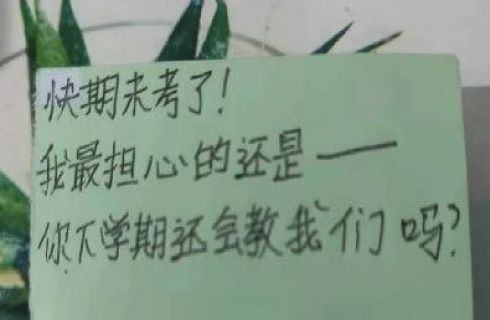 快期末考了!
我最担心的还是——
你下学期还会教我们吗?